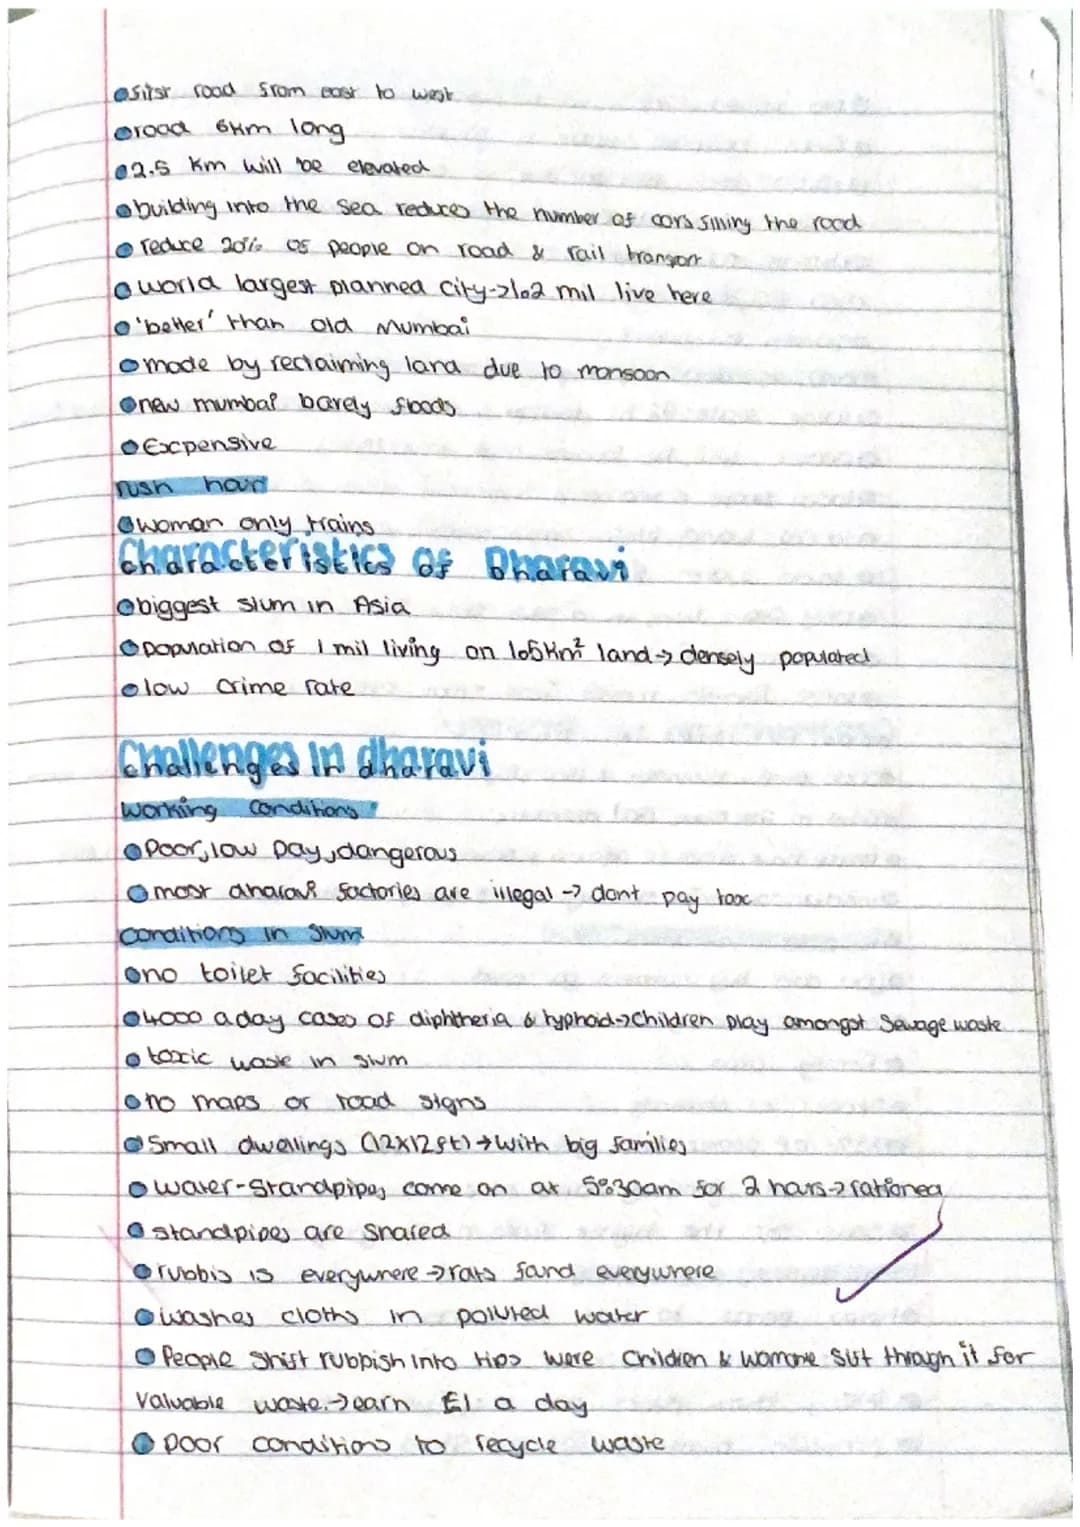 first road from east to west
road 6km long
2.5 km will be elevated
building into the sea reduces the number of cars filling the road
reduce 20% of people on road & rail transport
world largest planned city->1.2 mil live here
'better' than old Mumbai
made by reclaiming land due to monsoon
new mumbai barely floods
Expensive
rush hour
woman only trains
Characteristics of Dharavi
biggest slum in Asia
population of 1 mil living on 1.5km² land -> densely populated
low crime rate
Challenges in dharavi
working conditions
Poor, low pay, dangerous
most dharavi factories are illegal -> dont pay tax
conditions in slum
no toilet facilities
4000 a day cases of diphtheria & typhoid->Children play amongst sewage waste
toxic waste in slum
no maps or road signs
Small dwellings (12x12ft) -> with big families
water-standpipes come on at 5:30am for 2 hours -> rationed
standpipes are shared
rubbis is everywhere -> rats fand everywhere
washes cloths in polluted water
People shift rubbish into tips were Children & womane sift through it for
valuable waste. -> earn £1 a day
poor conditions to recycle waste